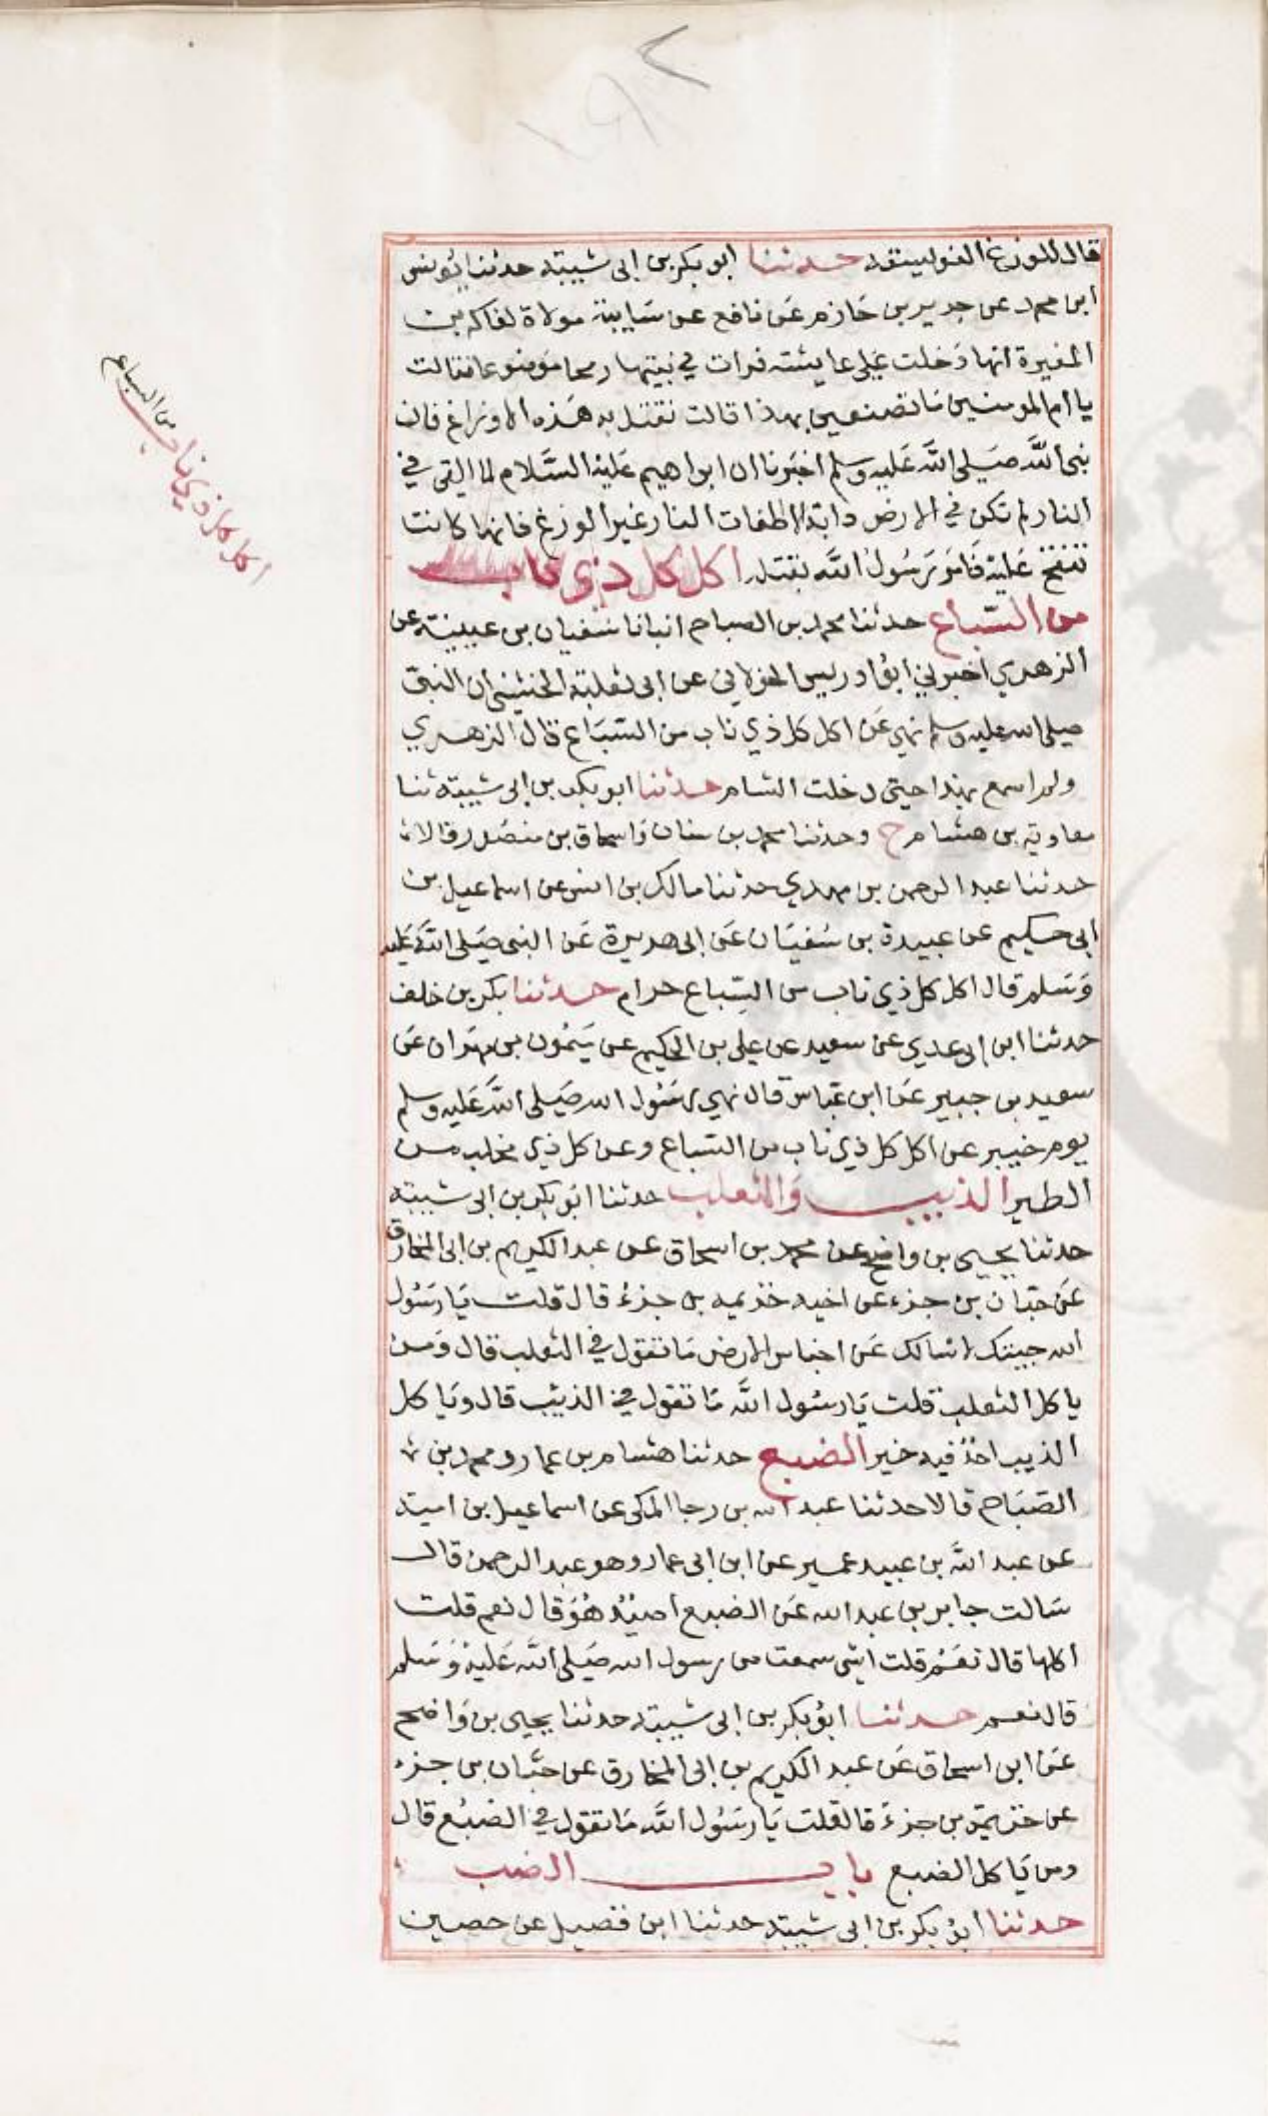 قال للوزغ الفوليسقه حدثنا ابو بكر بن ابى شيبة حدثنا يونس
ابن محمد عن جرير بن حازم عن نافع عن سايبة مولاة لفاكه بن
المغيرة انها دخلت على عايشة فرات في بيتها رمحا موضوعا فقالت
يا ام المومنين ما تصنعين بهذا قالت نقتل به هذه الاوزاغ فان
نبى الله صلى الله عليه وسلم اخبرنا ان ابراهيم عليه السلام لما القي في
النار لم تكن في الارض دابة الا اطفات النار غير الوزغ فانها كانت
تنفخ عليه فامر رسول الله بقتله اكل كل ذي ناب
من السباع حدثنا محمد بن الصباح انبانا سفيان بن عيينة عن
الزهدي اخبرني ابو ادريس الخولاني عن ابى ثعلبة الخشنى ان النبى
صلى الله عليه وسلم نهي عن اكل كل ذي ناب من السباع قال الزهدي
ولم اسمع بهذا حيتى دخلت الشام حدثنا ابو بكر بن ابى شيبة ثنا
معاوية بن هشام ح وحدثنا محمد بن سنان واسحاق بن منصور قالا
حدثنا عبد الرحمن بن مهدي حدثنا مالك بن انس عن اسماعيل بن
ابى حكيم عن عبيدة بن سفيان عن ابى هريرة عن النبى صلى الله عليه
وسلم قال اكل كل ذي ناب من السباع حرام حدثنا بكر بن خلف
حدثنا ابن ابى عدي عن سعيد عن على بن الحكيم عن يمون بن مهران عن
سعيد بن جبير عن ابن عباس قال نهي رسول الله صلى الله عليه وسلم
يوم خيبر عن اكل كل ذي ناب من السباع وعن كل ذي مخلب من
الطير الذيب والثعلب حدثنا ابو بكر بن ابى شيبة
حدثنا يحيى بن واضح عن محمد بن اسحاق عن عبد الكريم بن ابى المخارق
عن حبان بن جزء عن اخيه خزيمه بن جزء قال قلت يا رسول
الله جيتك اسالك عن اجناس الارض ما تقول في الثعلب قال ومن
ياكل الثعلب قلت يا رسول الله ما تقول في الذيب قال وياكل
الذيب احد فيه خير الضبع حدثنا هشام بن عمار ومحمد بن
الصباح قالا حدثنا عبد الله بن رجا المكى عن اسماعيل بن امية
عن عبد الله بن عبيد عمير عن ابن ابى عمار وهو عبد الرحمن قال
سالت جابر بن عبد الله عن الضبع اصيد هو قال نعم قلت
اكلها قال نعم قلت اشى سمعت من رسول الله صلى الله عليه وسلم
قال نعم حدثنا ابو بكر بن ابى شيبة حدثنا يحيى بن واضح
عن ابن اسحاق عن عبد الكريم بن ابى المخارق عن حبان بن جزء
عن خزيمة بن جزء قال قلت يا رسول الله ما تقول في الضبع قال
ومن ياكل الضبع باب الضب
حدثنا ابو بكر بن ابى شيبة حدثنا ابن فضيل عن حصين
اكل كل ذي ناب
من السباع